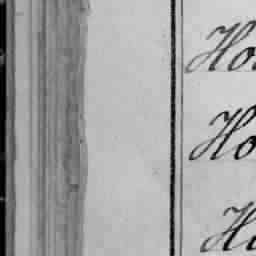 Ho
Ho
Ho